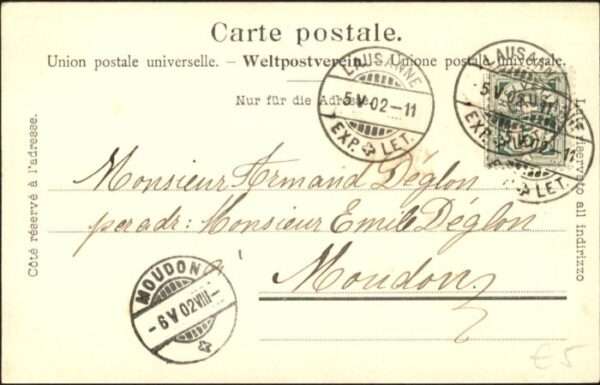 Carte postale.
Union postale universelle. – Weltpostverein. – Unione postale universale.
Nur für die Adresse.
LAUSANNE
5 V 02 – 11
EXP. LET.
LAUSANNE
5 V 02 11
EXP. LET.
LAUSANNE
5 V 02 – 11
EXP. LET.
Côté réservé à l'adresse.
Lato riservato all indirizzo
Monsieur Armand Déglon
per adr: Monsieur Emile Déglon
Moudon
MOUDON
– 6 V 02 VIII –
€5